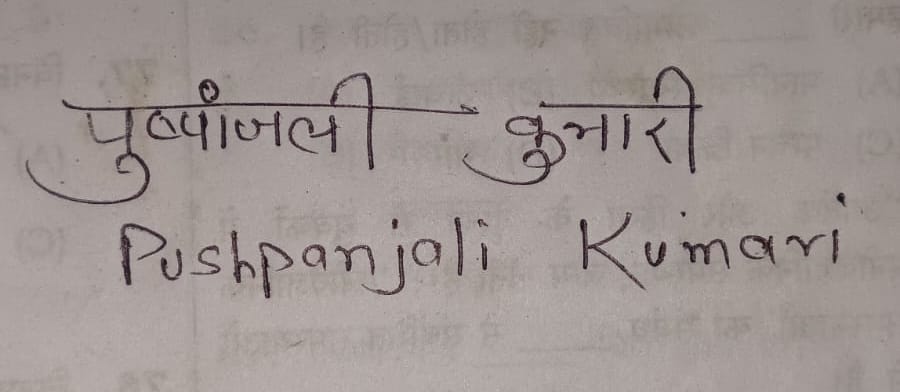 पुष्पांजली कुमारी
Pushpanjali Kumari